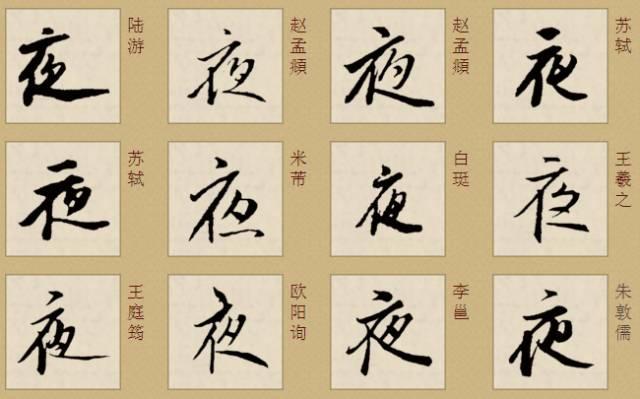 夜 陆游
夜 赵孟頫
夜 赵孟頫
夜 苏轼
夜 苏轼
夜 米芾
夜 白珽
夜 王羲之
夜 王庭筠
夜 欧阳询
夜 李邕
夜 朱敦儒